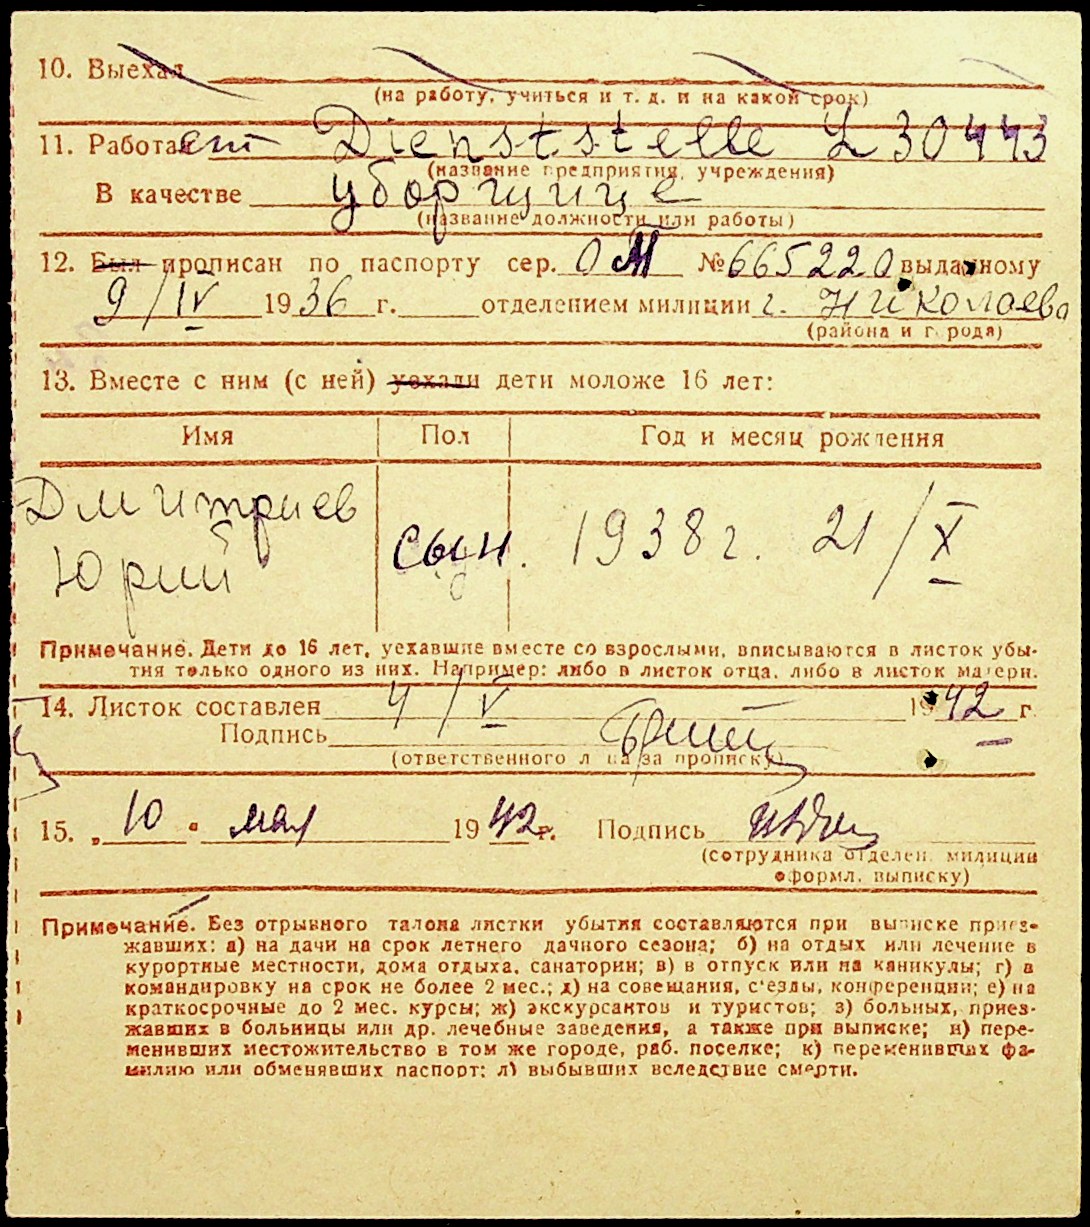 10. Выехал
(на работу, учиться и т. д. и на какой срок)
11. Работает Dienststelle L 30443
(название предприятия, учреждения)
В качестве уборщице
(название должности или работы)
12. Был прописан по паспорту сер. ОМ № 665220 выданному
9/IV 1936 г. отделением милиции г. Николаева
(района и города)
13. Вместе с ним (с ней) уехали дети моложе 16 лет:
Имя Пол Год и месяц рождения
Дмитриев
Юрий сын. 1938 г. 21/X
Примечание. Дети до 16 лет, уехавшие вместе со взрослыми, вписываются в листок убы-
тия только одного из них. Например: либо в листок отца, либо в листок матери.
14. Листок составлен 4/V 1942 г
Подпись
(ответственного лица за прописку)
15. „10" мая 1942 г. Подпись
(сотрудника отделен. милиции
оформл. выписку)
Примечание. Без отрывного талона листки убытия составляются при выписке приез-
жавших: а) на дачи на срок летнего дачного сезона; б) на отдых или лечение в
курортные местности, дома отдыха, санатории; в) в отпуск или на каникулы; г) в
командировку на срок не более 2 мес.; д) на совещания, с'езды, конференции; е) на
краткосрочные до 2 мес. курсы; ж) экскурсантов и туристов; з) больных, приез-
жавших в больницы или др. лечебные заведения, а также при выписке; и) пере-
менивших местожительство в том же городе, раб. поселке; к) переменивших фа-
милию или обменявших паспорт; л) выбывших вследствие смерти.